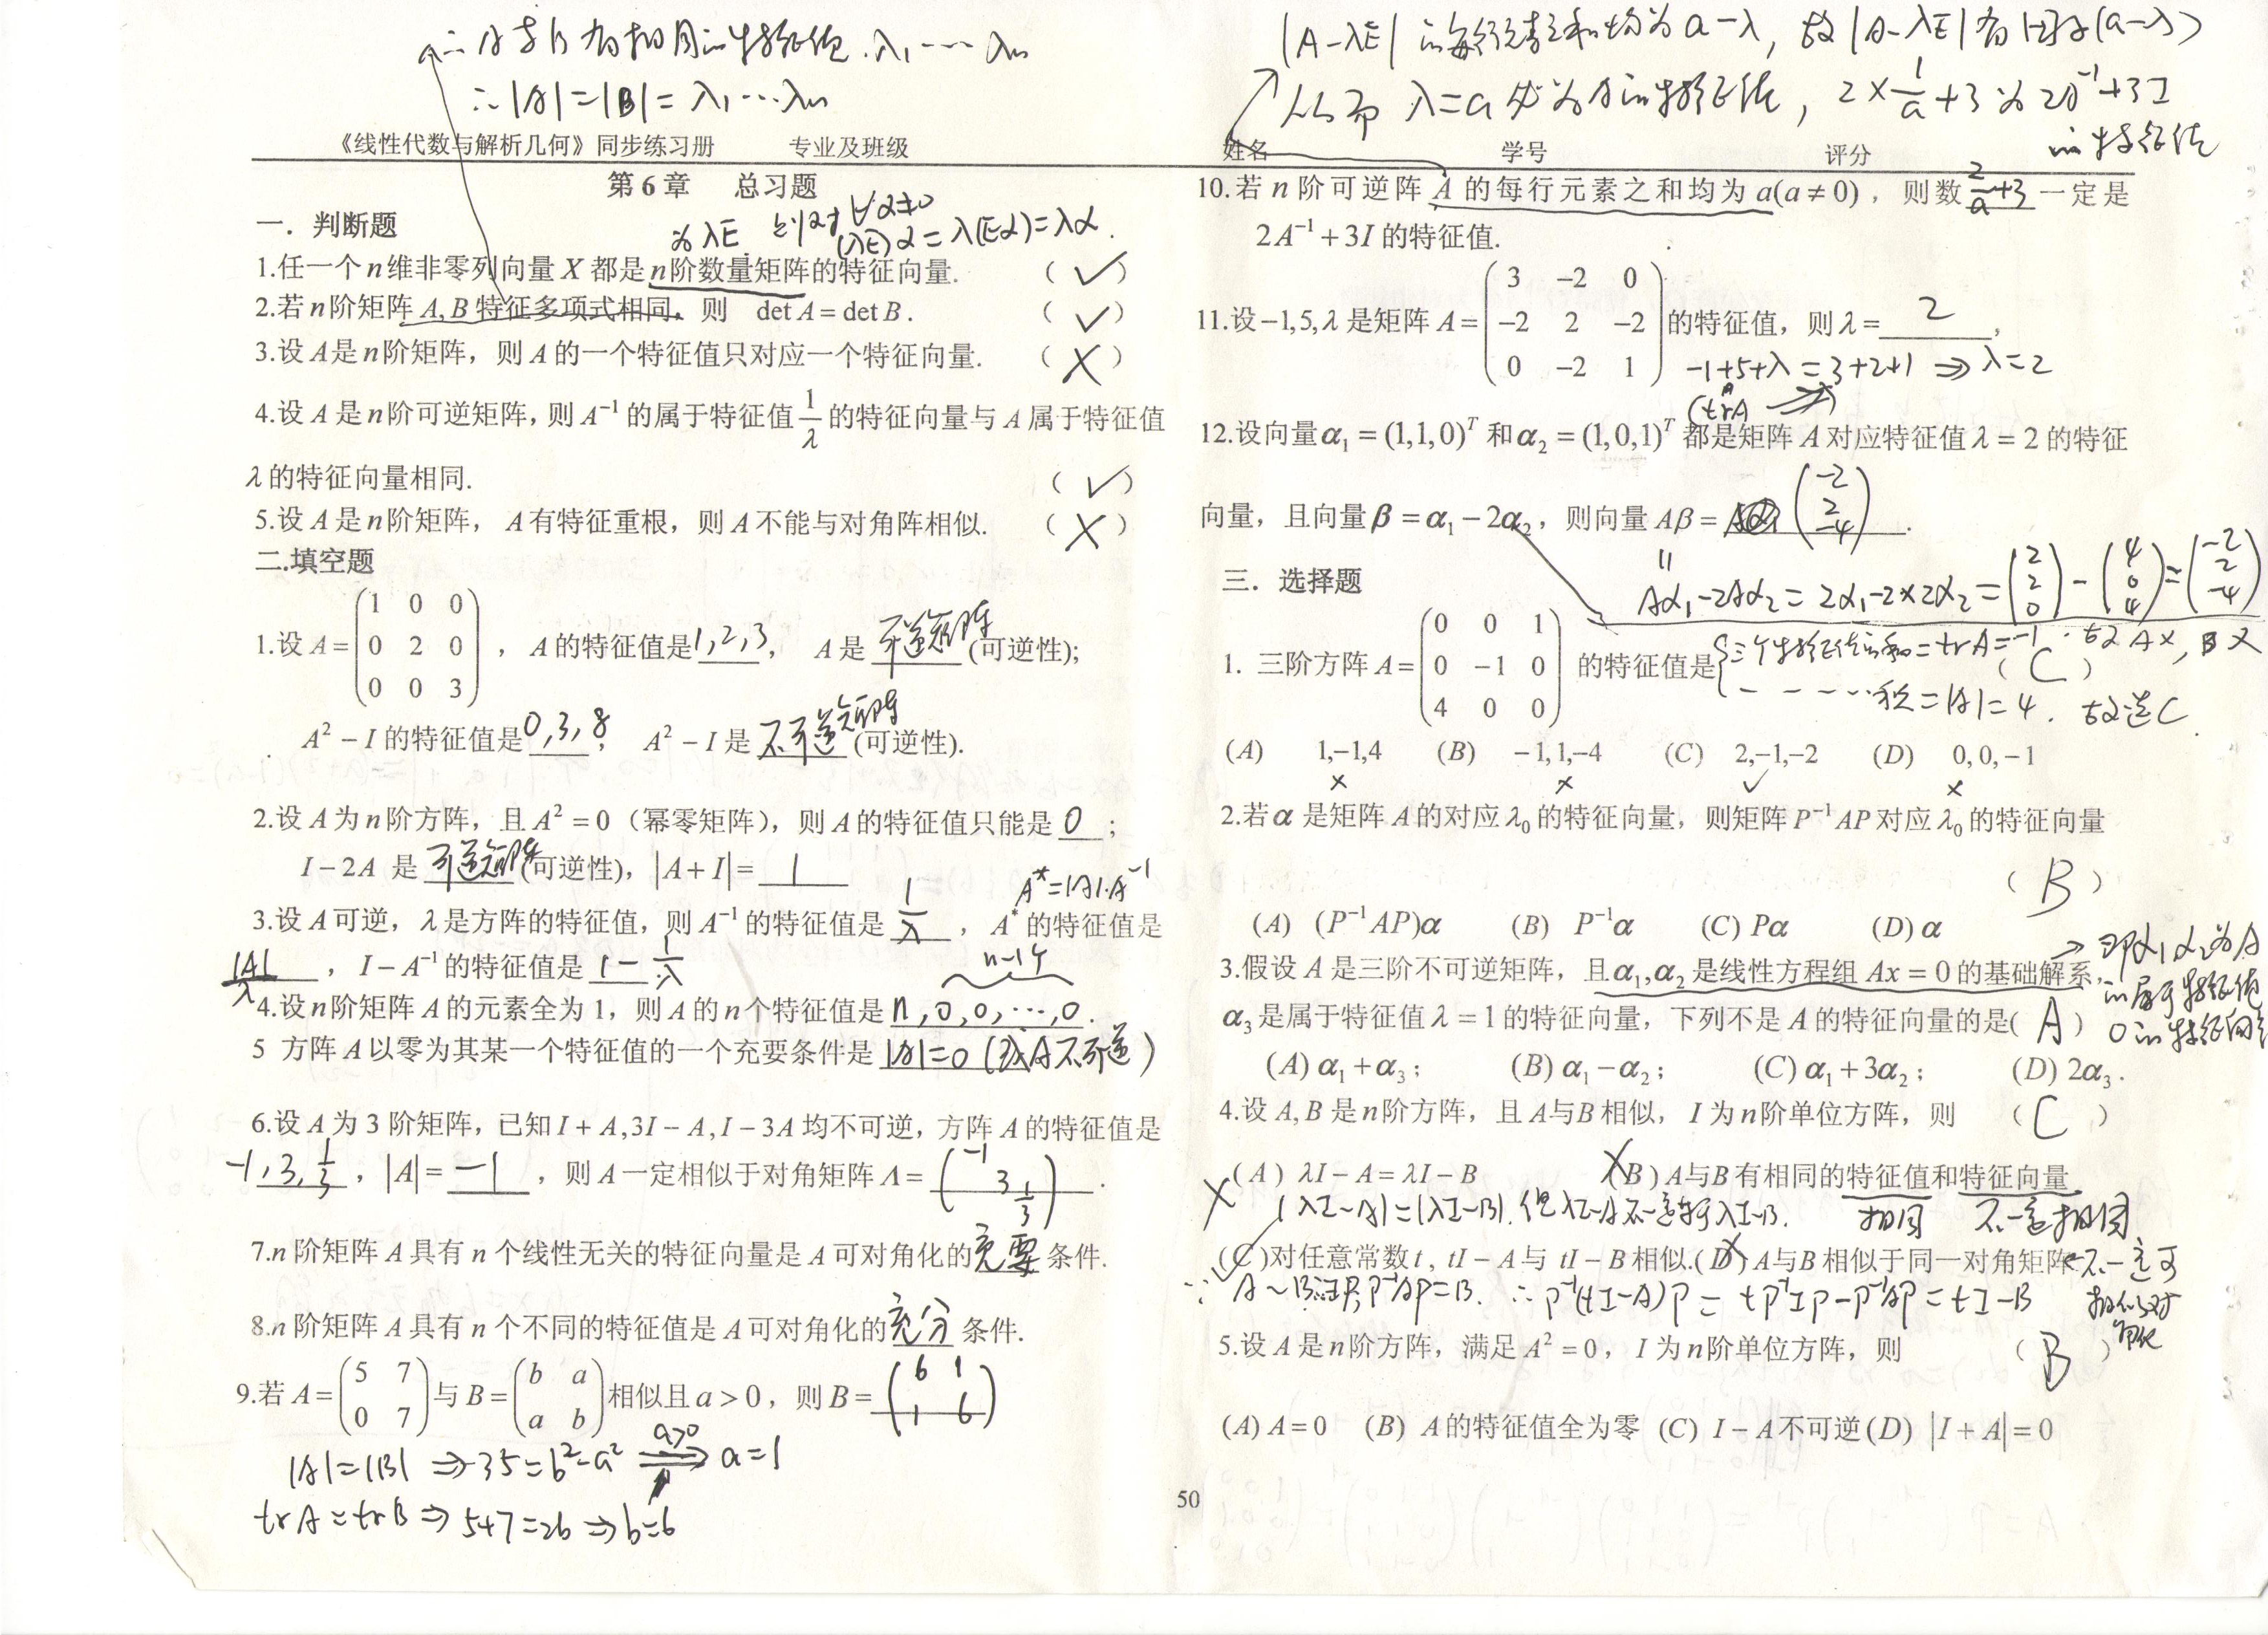 ∴ A与B有相同的特征值.λ₁····λₙ
∴|A|=|B|= λ₁···λₙ
《线性代数与解析几何》同步练习册 专业及班级
第 6 章 总习题
一．判断题
为λE 则对∀α≠0
(λE)α=λ(Eα)=λα.
1.任一个n维非零列向量 X 都是n阶数量矩阵的特征向量. （ ✓ ）
2.若n阶矩阵 A,B 特征多项式相同，则 det A = det B . （ ✓ ）
3.设 A是n阶矩阵，则 A 的一个特征值只对应一个特征向量. （ X ）
4.设 A 是n阶可逆矩阵，则 A⁻¹ 的属于特征值 1/λ 的特征向量与 A 属于特征值
λ 的特征向量相同. （ ✓ ）
5.设 A 是n阶矩阵， A有特征重根，则 A 不能与对角阵相似. （ X ）
二.填空题
1 0 0
1.设 A = 0 2 0 ，A 的特征值是1,2,3， A 是 可逆矩阵 (可逆性);
0 0 3
A² − I 的特征值是0,3,8， A² − I 是 不可逆矩阵 (可逆性).
2.设 A 为n阶方阵，且 A² = 0（幂零矩阵），则 A的特征值只能是 0 ；
I − 2A 是 可逆矩阵 (可逆性)，|A + I| = 1
A*=|A|·A⁻¹
3.设 A 可逆，λ 是方阵的特征值，则 A⁻¹ 的特征值是 1/λ ，A* 的特征值是
|A|/λ ，I − A⁻¹ 的特征值是 1−1/λ
n−1个
4.设n阶矩阵 A 的元素全为 1，则 A 的n个特征值是 n,0,0,···,0 .
5 方阵 A 以零为其某一个特征值的一个充要条件是 |A|=0 (或A不可逆)
6.设 A 为 3 阶矩阵，已知 I + A,3I − A,I − 3A 均不可逆，方阵 A 的特征值是
-1,3,1/3，|A| = −1 ，则 A 一定相似于对角矩阵 Λ = (−1 3 1/3) .
7.n 阶矩阵 A 具有 n 个线性无关的特征向量是 A 可对角化的充要条件.
8.n 阶矩阵 A 具有 n 个不同的特征值是 A 可对角化的充分条件.
5 7 b a 6 1
9.若 A = 与 B = 相似且 a > 0，则 B =
0 7 a b 1 6
|A|=|B| ⇒35=b²−a² a>0 ⇒ a=1
trA=trB⇒5+7=2b⇒b=6
|A−λE|的每行元素之和均为a−λ，故|A−λE|有因子(a−λ)
从而 λ=a 必为A的特征值，2×1/a+3为2A⁻¹+3I
的特征值
姓名 学号 评分
10.若 n 阶可逆阵 A 的每行元素之和均为 a(a ≠ 0)，则数 2/a+3 一定是
2A⁻¹ + 3I 的特征值.
3 −2 0
11.设−1,5,λ 是矩阵 A = −2 2 −2 的特征值，则 λ = 2 ,
0 −2 1
−1+5+λ=3+2+1 ⇒λ=2
(trA
12.设向量α₁ = (1,1,0)ᵀ 和α₂ = (1,0,1)ᵀ 都是矩阵 A 对应特征值 λ = 2 的特征
向量，且向量 β = α₁ − 2α₂，则向量 Aβ = (−2 2 −4) .
Aα₁−2Aα₂=2α₁−2×2α₂=(2 2 0)−(4 0 4)=(−2 2 −4)
三．选择题
0 0 1
1. 三阶方阵 A = 0 −1 0 的特征值是 （ C ）
4 0 0
三个特征值的和=trA=−1. 故A×, B×
− − − ···积=|A|=4. 故选C.
(A) 1,−1,4 (B) −1,1,−4 (C) 2,−1,−2 (D) 0,0,−1
× × ✓ ×
2.若α 是矩阵 A 的对应 λ₀ 的特征向量，则矩阵 P⁻¹AP 对应 λ₀ 的特征向量
（ B ）
(A) (P⁻¹AP)α (B) P⁻¹α (C) Pα (D) α
→即α₁α₂为A
的属于特征值
0的特征向量
3.假设 A 是三阶不可逆矩阵，且α₁,α₂ 是线性方程组 Ax = 0 的基础解系，
α₃ 是属于特征值 λ = 1 的特征向量，下列不是 A 的特征向量的是( A )
(A) α₁ + α₃； (B) α₁ − α₂； (C) α₁ + 3α₂； (D) 2α₃．
4.设 A,B 是n阶方阵，且 A与B 相似， I 为n阶单位方阵，则 （ C ）
X (A) λI − A = λI − B X (B) A与B 有相同的特征值和特征向量
|λI−A|=|λI−B|.但λI−A不一定等于λI−B. 相同 不一定相同
✓ (C)对任意常数t, tI − A与 tI − B 相似.(D) A与B 相似于同一对角矩阵←不一定可
相似对
角化
∵A~B∴∃P,P⁻¹AP=B. ∴P⁻¹(tI−A)P=tP⁻¹IP−P⁻¹AP=tI−B
5.设 A 是n阶方阵，满足 A² = 0，I 为n阶单位方阵，则 （ B ）
(A) A = 0 (B) A的特征值全为零 (C) I − A 不可逆 (D) |I + A| = 0
50